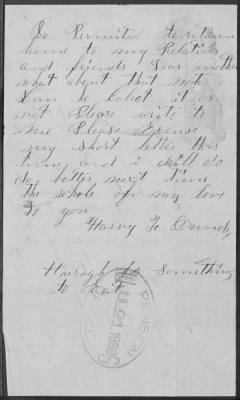 be Permited to return
home to my Relatives
and friends Dear mother
what about that note
can he colect it or
not Please write to
me Please excuse
my short letter this
time and i will do
do better next time
the whole of my love
to you
Harvy
Hurragh for Something
to eat
PENSION
JUL 21 188